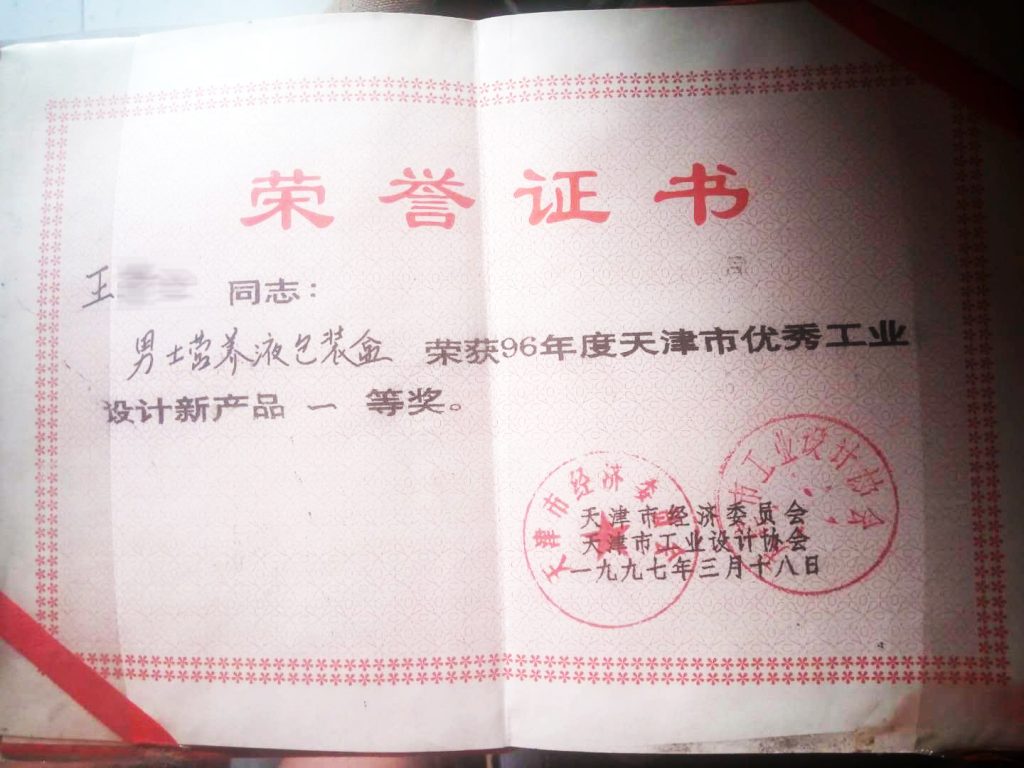 荣誉证书
王 同志：
男士营养液包装盒 荣获96年度天津市优秀工业
设计新产品 一 等奖。
天津市经济委员会
天津市工业设计协会
天津市经济委员会
天津市工业设计协会
一九九七年三月十八日